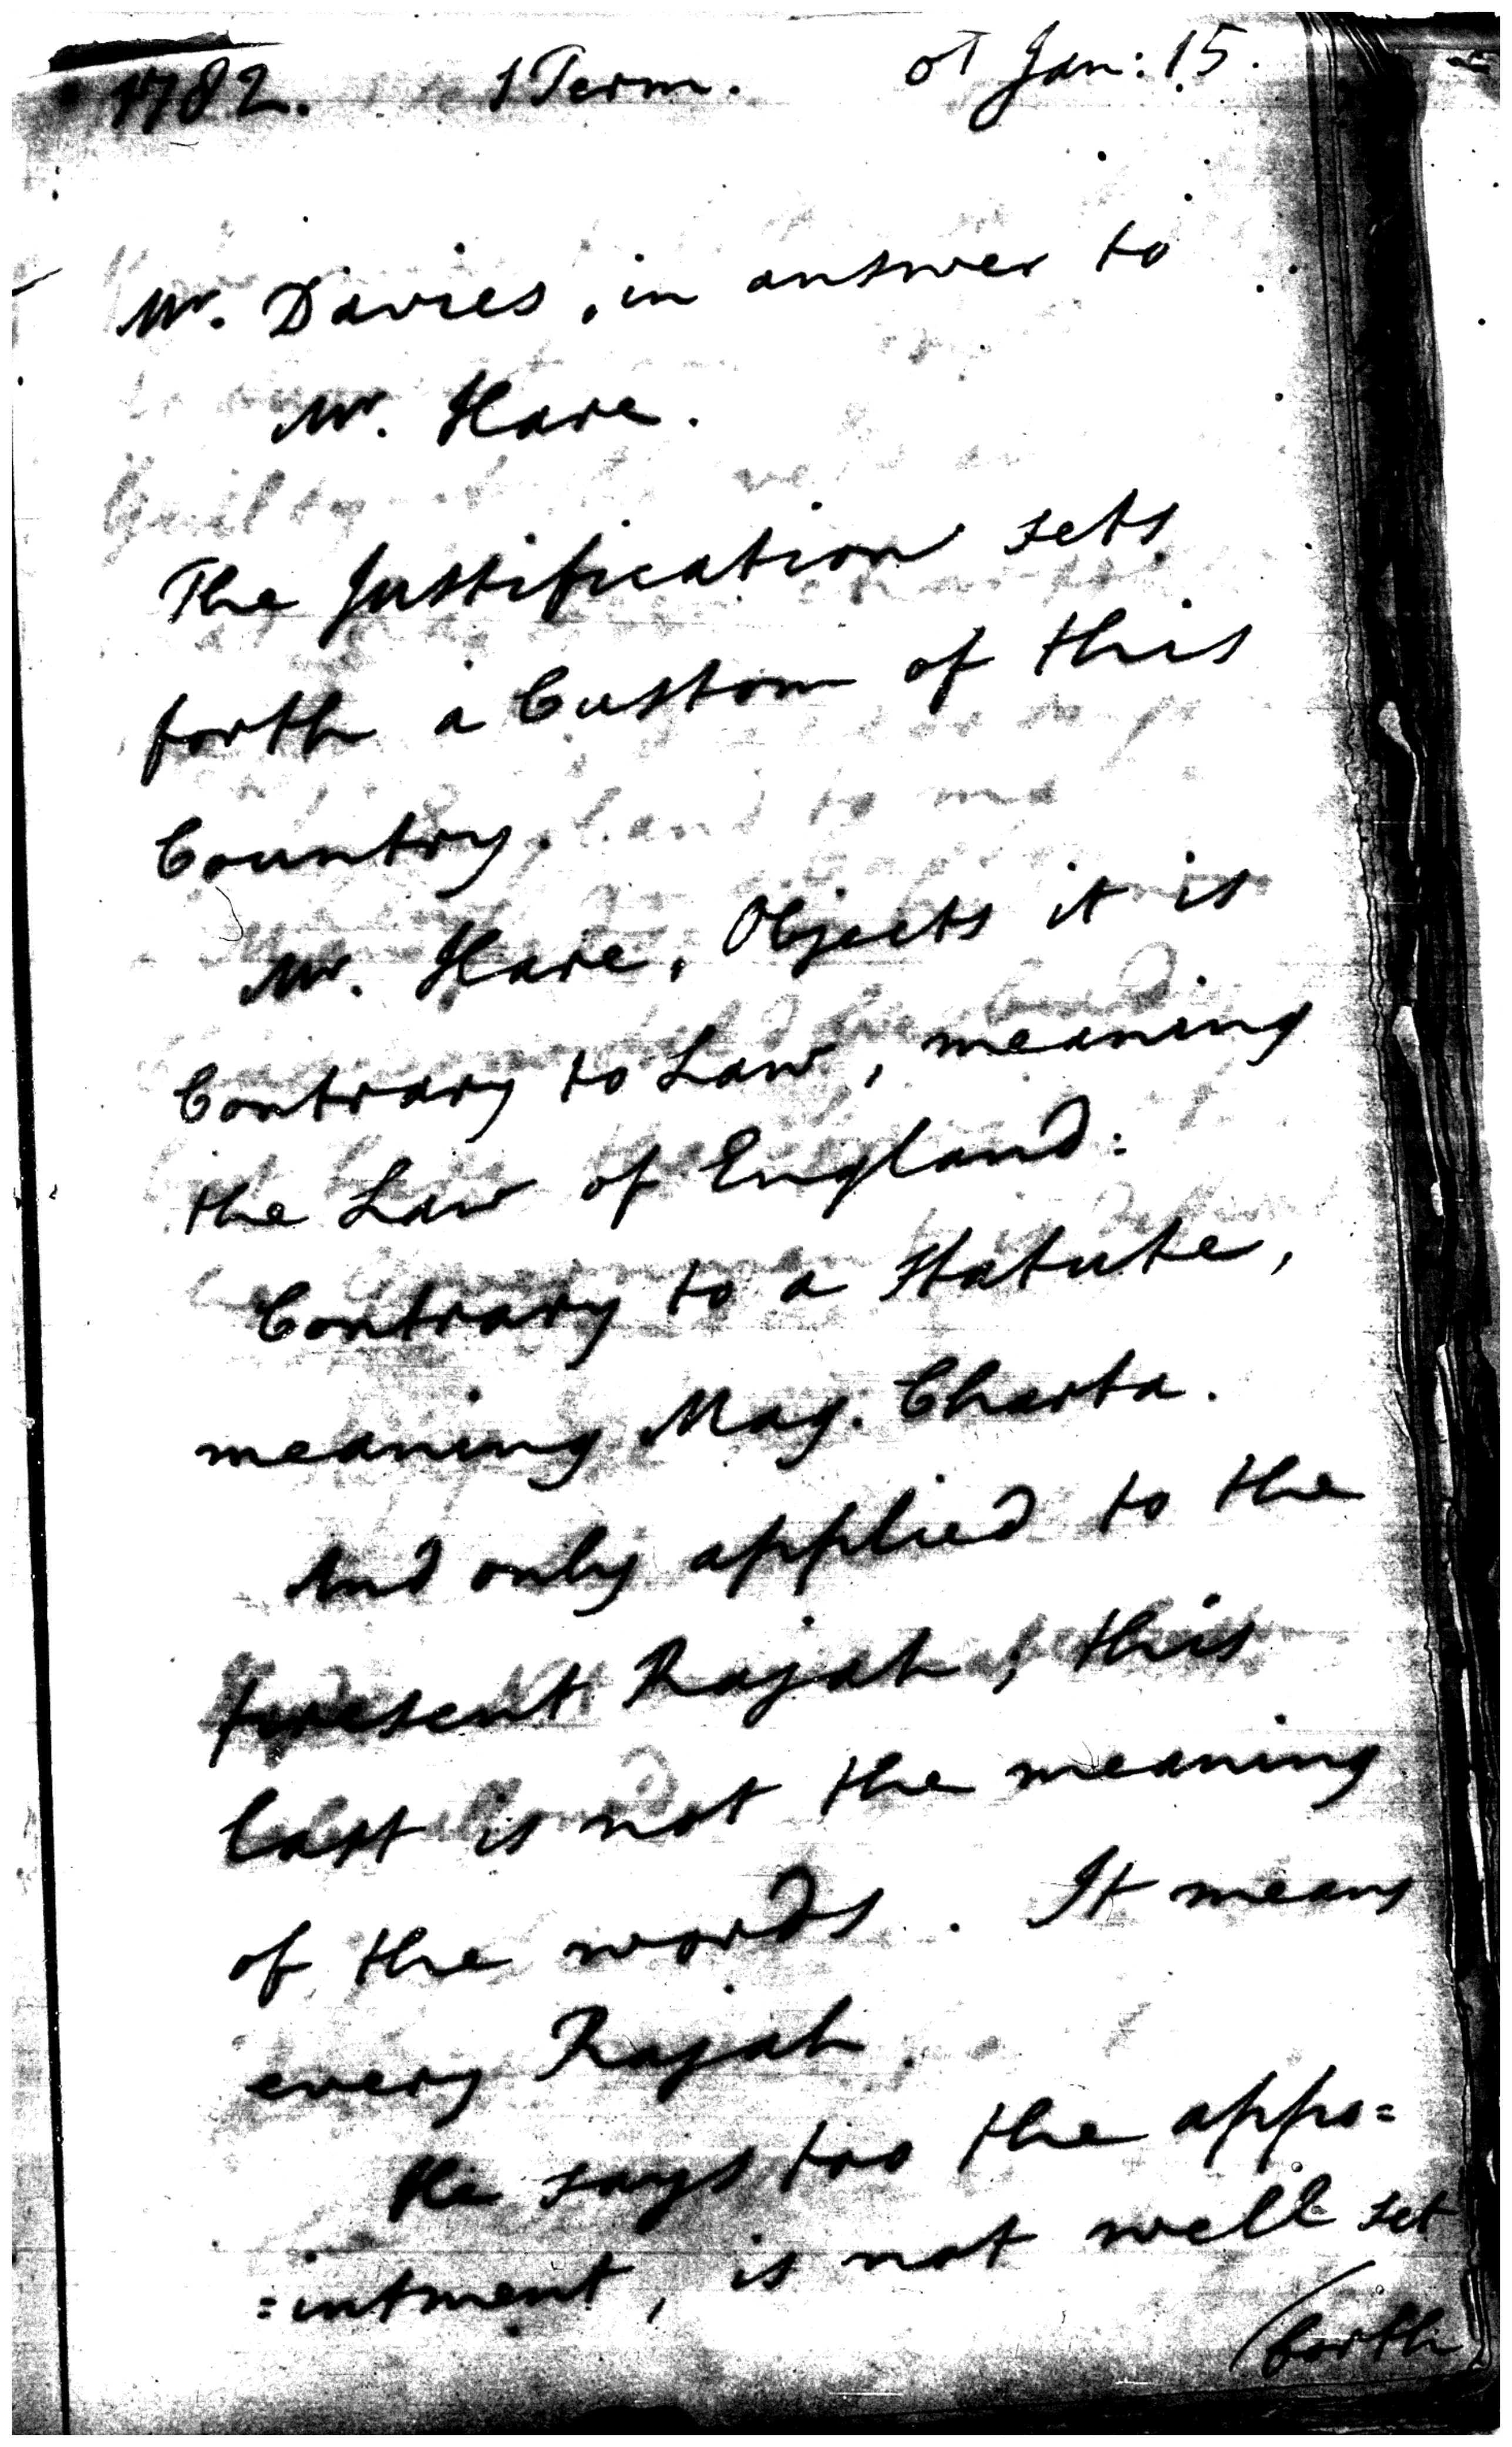 1782. 1 Term. Jan: 15.
Mr. Davies, in answer to
Mr. Hare.
The Justification sets
forth a Custom of this
Country.
Mr. Hare, Objects it is
Contrary to Law, meaning
the Law of England:
Contrary to a Statute,
meaning Mag. Charta.
And only applied to the
present Rajah; this
last is not the meaning
of the words. It means
every Rajah.
He says too the appo=
=intment, is not well set
forth